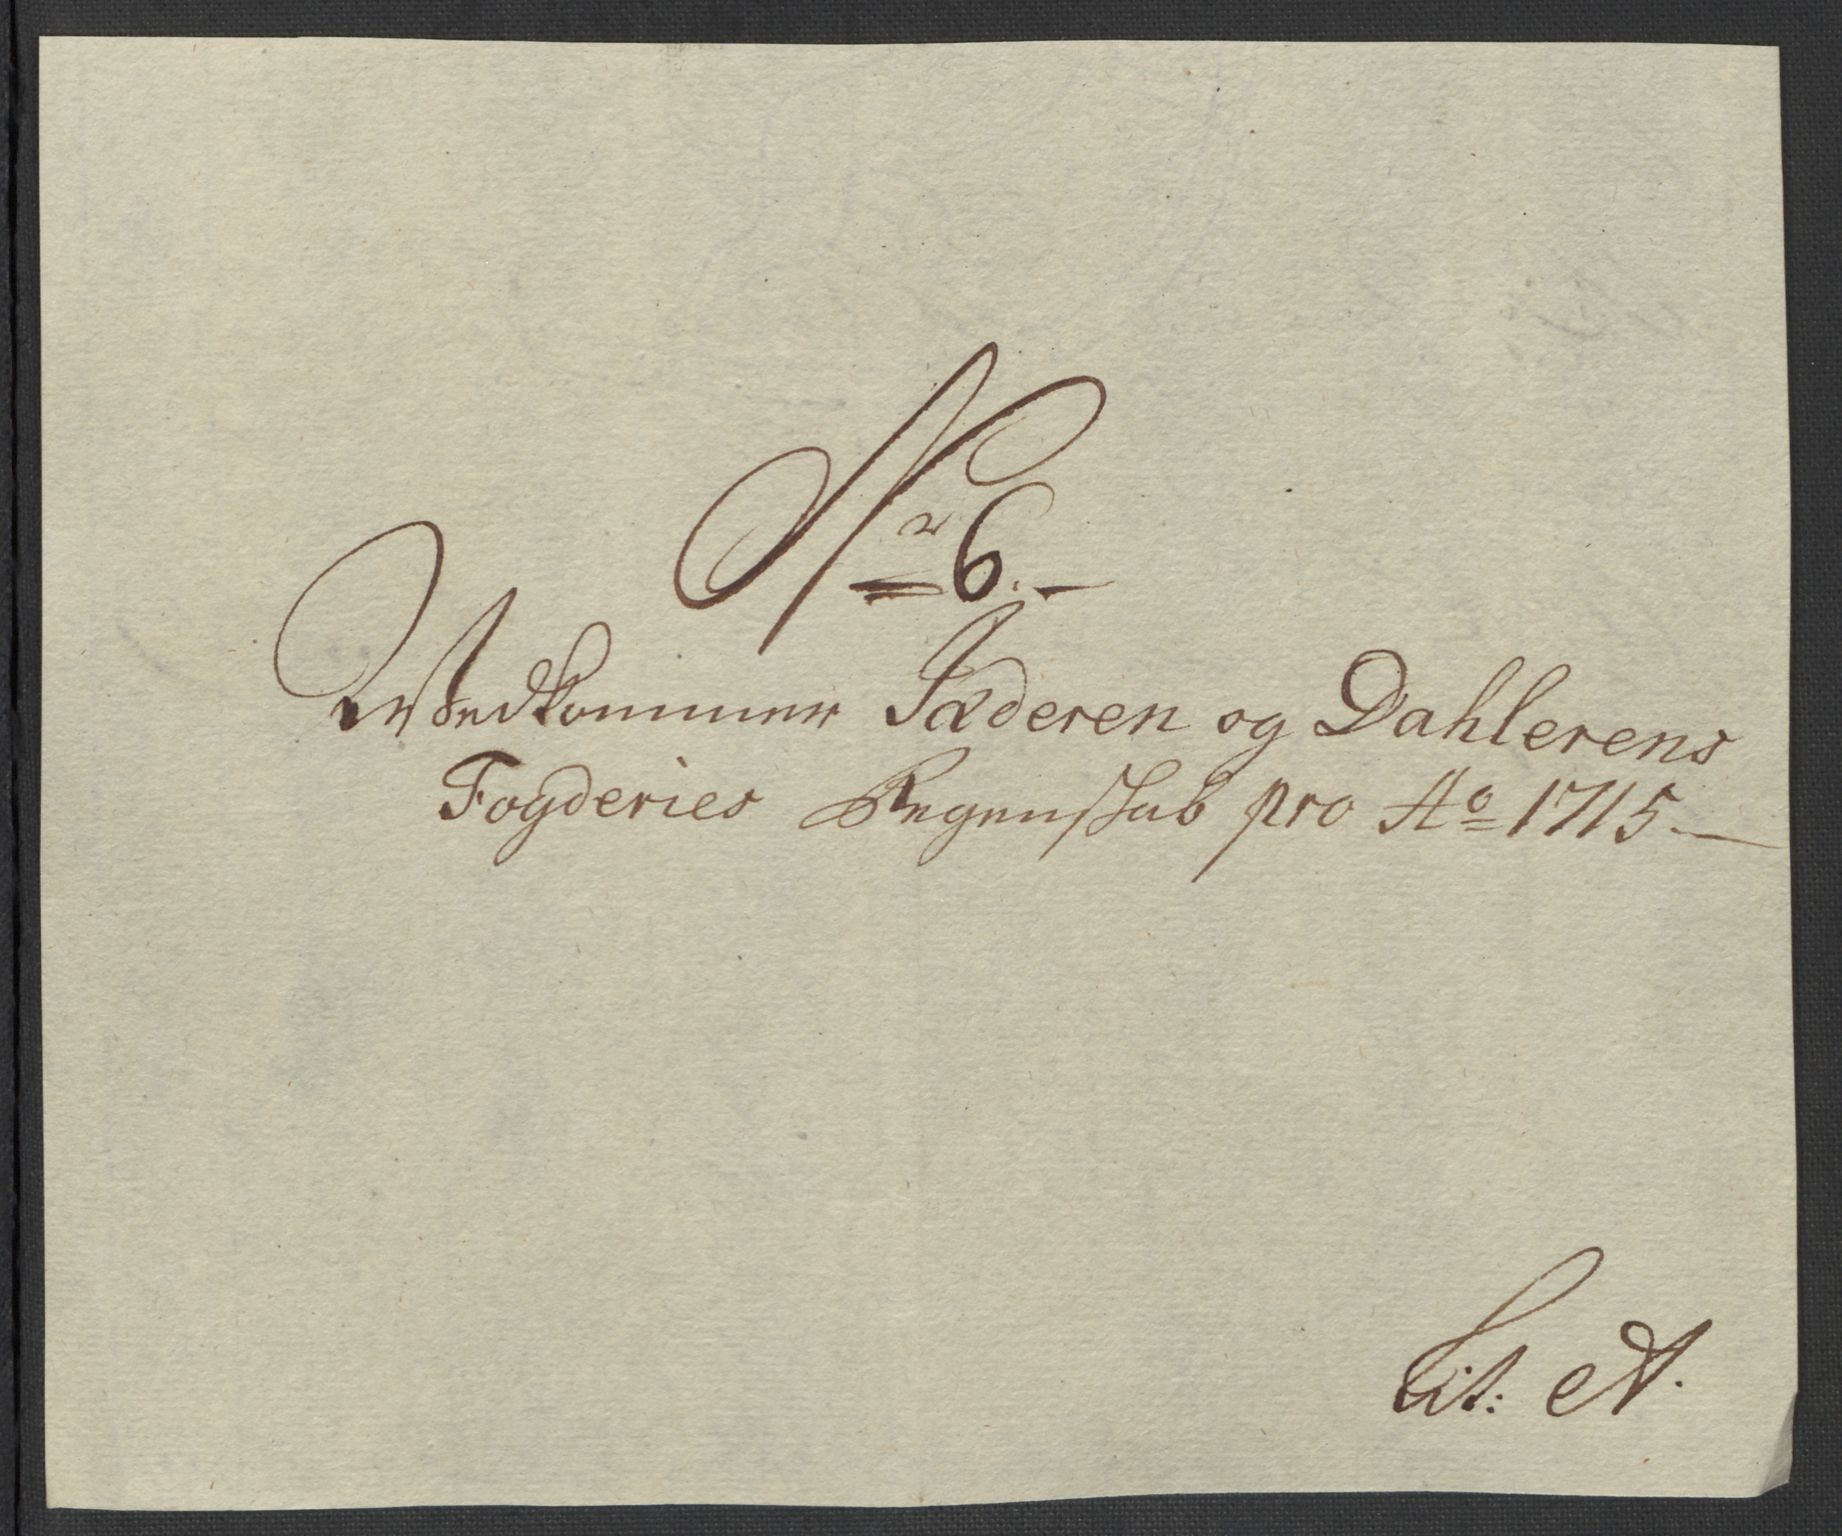 Nr 6.
Vedkommer Jæderen og Dahlerens
Fogderies Regenskab pro Ao 1715.
Lit: A.